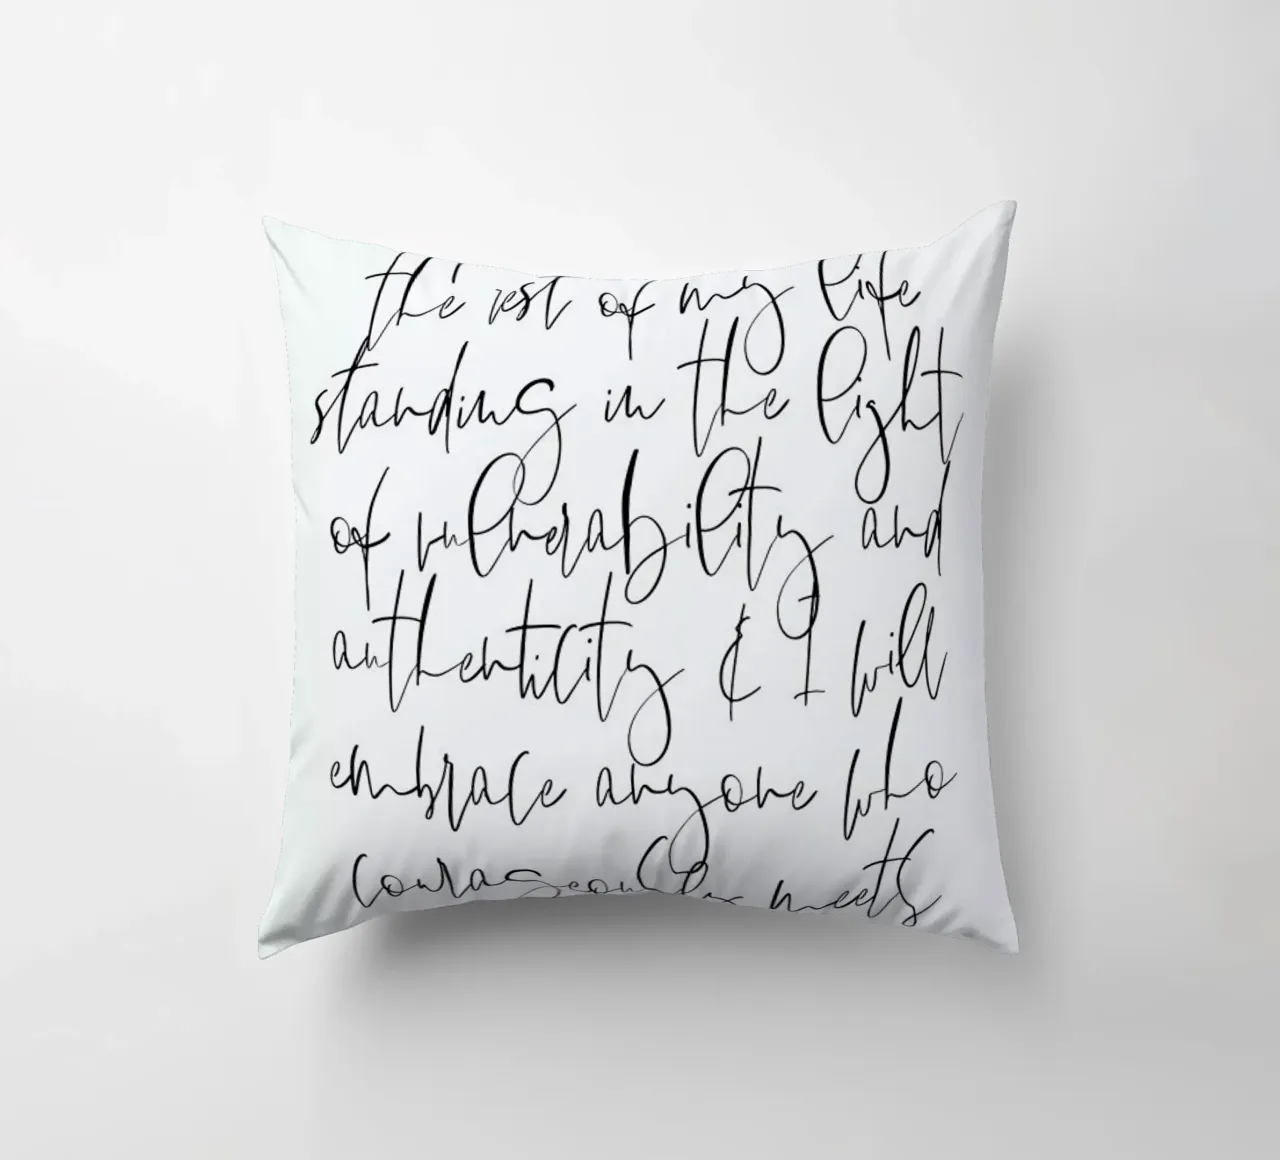 the rest of my life
standing in the light
of vulnerability and
authenticity & I will
embrace anyone who
courageously meets